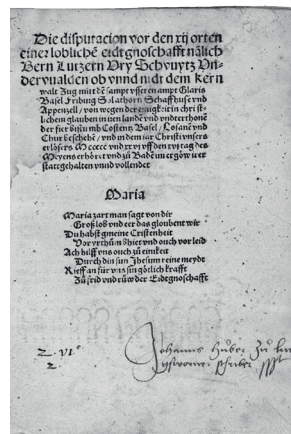 Die disputacion vor den xij orten
einer loblichē eidtgnoschafft nālich
Bern Lutzern Vry Schvuytz Vn-
dervualden ob vnnd nidt dem kern
walt Zug mitt dē sampt vsseren ampt Glaris
Basel Friburg Solathorn Schaffhuse vnd
Appenzell / von wegen der einigkeit in christ
lichem glauben in iren landē vnd vnderthonē
der fier bistumb Costentz Basel / Losanē vnd
Chur beschehē / vnd in dem iar Christi vnsers
erlösers M ccccc vnd xxvj vff den xvj tag des
Meyens erhört vnd zů Badē im ergöw irer
statt gehalten vnnd vollendet
Maria
Maria zart man sagt von dir
Groß lob vnd eer das gloubent wir
Du habst gmeine Cristenheit
Vor yrthům bhiet vnd ouch vor leid
Ach hilff vns ouch zů einikeit
Durch din sun Jhesum reine meydt
Rieff an für vns sin götlich krafft
Zů frid vnd růw der Eidtgnoschafft
Z. VI. c
2.
Johanns Hůber zů